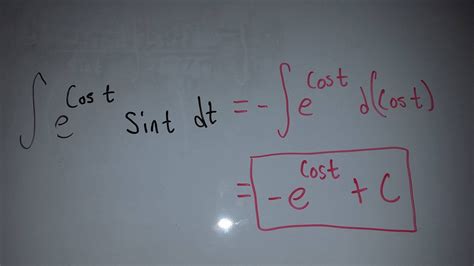 ∫ e^{Cos t} Sint dt = - ∫ e^{Cost} d(Cost)
= -e^{Cost} + C